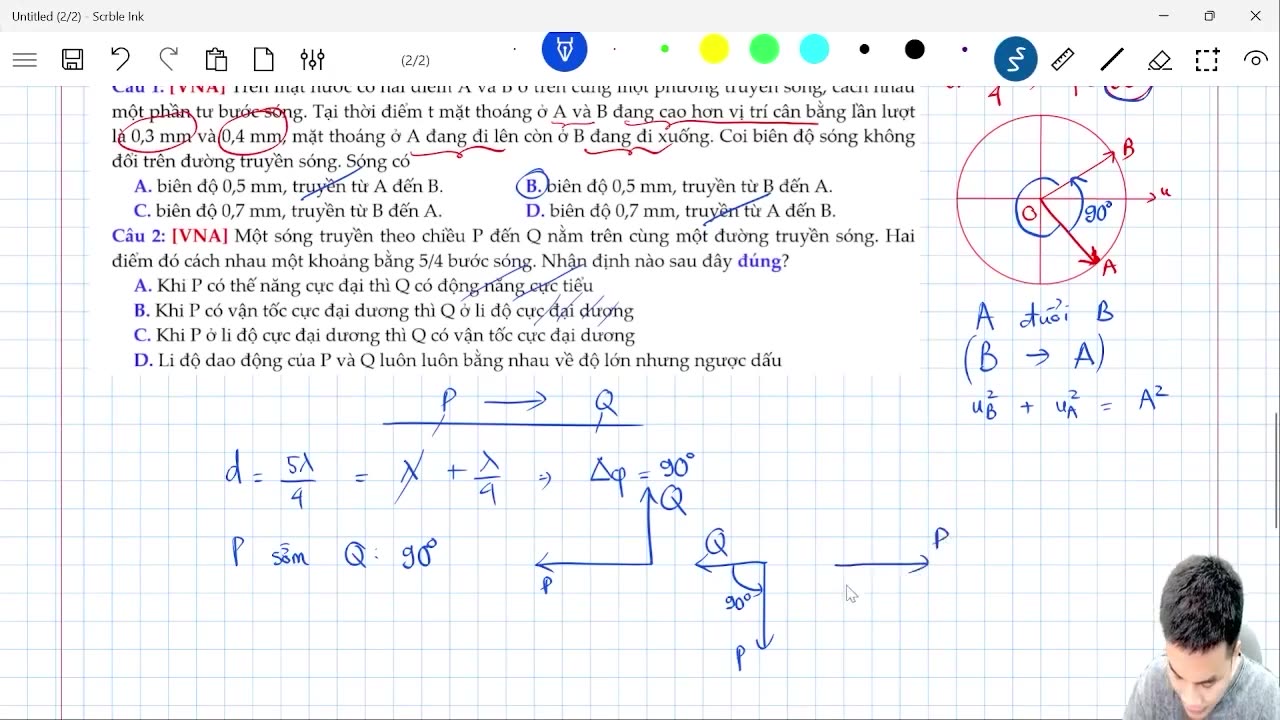 Untitled (2/2) - Scrble Ink
(2/2)
Câu 1: [VNA] Trên mặt nước có hai điểm A và B ở trên cùng một phương truyền sóng, cách nhau
một phần tư bước sóng. Tại thời điểm t mặt thoáng ở A và B đang cao hơn vị trí cân bằng lần lượt
là 0,3 mm và 0,4 mm, mặt thoáng ở A đang đi lên còn ở B đang đi xuống. Coi biên độ sóng không
đổi trên đường truyền sóng. Sóng có
A. biên độ 0,5 mm, truyền từ A đến B.
B. biên độ 0,5 mm, truyền từ B đến A.
C. biên độ 0,7 mm, truyền từ B đến A.
D. biên độ 0,7 mm, truyền từ A đến B.
Câu 2: [VNA] Một sóng truyền theo chiều P đến Q nằm trên cùng một đường truyền sóng. Hai
điểm đó cách nhau một khoảng bằng 5/4 bước sóng. Nhận định nào sau đây đúng?
A. Khi P có thế năng cực đại thì Q có động năng cực tiểu
B. Khi P có vận tốc cực đại dương thì Q ở li độ cực đại dương
C. Khi P ở li độ cực đại dương thì Q có vận tốc cực đại dương
D. Li độ dao động của P và Q luôn luôn bằng nhau về độ lớn nhưng ngược dấu
B
u
O
90°
A
A đuổi B
(B → A)
u_B² + u_A² = A²
P → Q
d = 5λ/4 = λ + λ/4 ⇒ Δφ = 90°
P sớm Q: 90°
Q
P
Q
90°
P
P